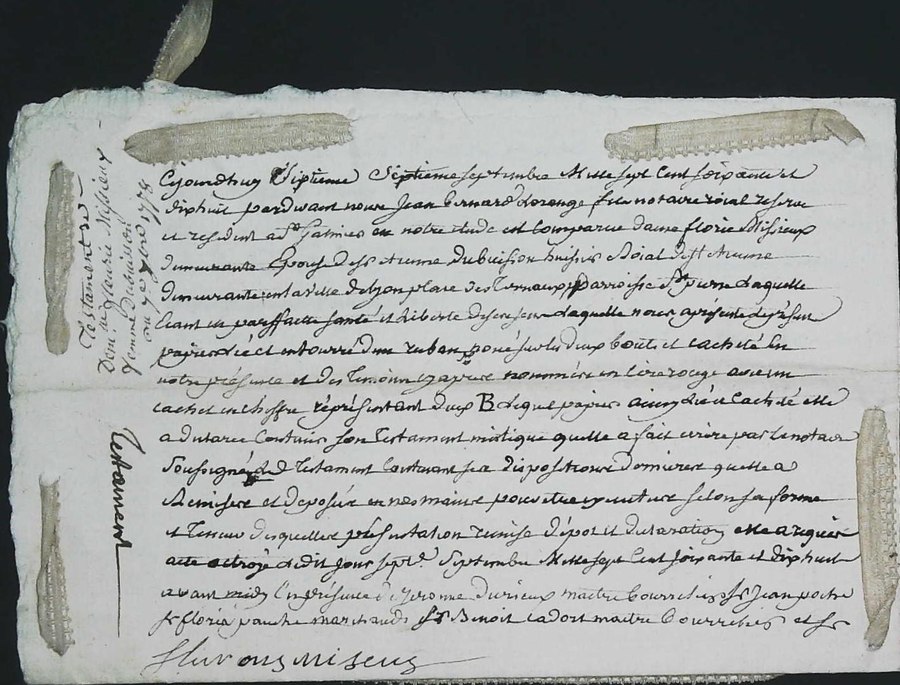 Testament de
Dem.lle florie Missieux
femme dubuisson
du 7e 7bre 1778
Testament
Cejourdhuy Septieme septembre Mille sept Cent soixante et
dixhuit pardevant nous Jean Bernard fils notaire roial reservé
et resident a St Galmier en notre etude est Comparue dame florie Missieux
demeurante Epouse de sr Etienne dubuisson huissier Roial de St Etienne
demeurante en la ville de Lyon place des Terreaux parroisse St pierre Laquelle
Etant en parffaitte santé et Liberté de ses sens Laquelle nous a présenté le présent
papier Lié et entourré d'un ruban posé sur les deux bouts et cacheté En
notre présence et des Temoins cy apres nommés en cire rouge avec un
cachet en chiffre représentant deux B Lequel papier ainsy Lié et Cacheté elle
a declaré Contenir son Testament mistique quelle a fait écrire par le notaire
Soussigné Le d. Testament Contenant ses dispositions dernieres quelle a
Remises et deposée en nos mains pour être executué selon sa forme
et Teneur desquelles présentation remise dépot et declaration elle a requis
acte octroyé Ledit jour sept.e Septembre Mille sept Cent soixante et dixhuit
avant midy En présence d'Mzeronne Durieux maitre bourrelier sr Jean poche
sr florié pauche marchands sr Benoit cadort maitre bourrelier et sr